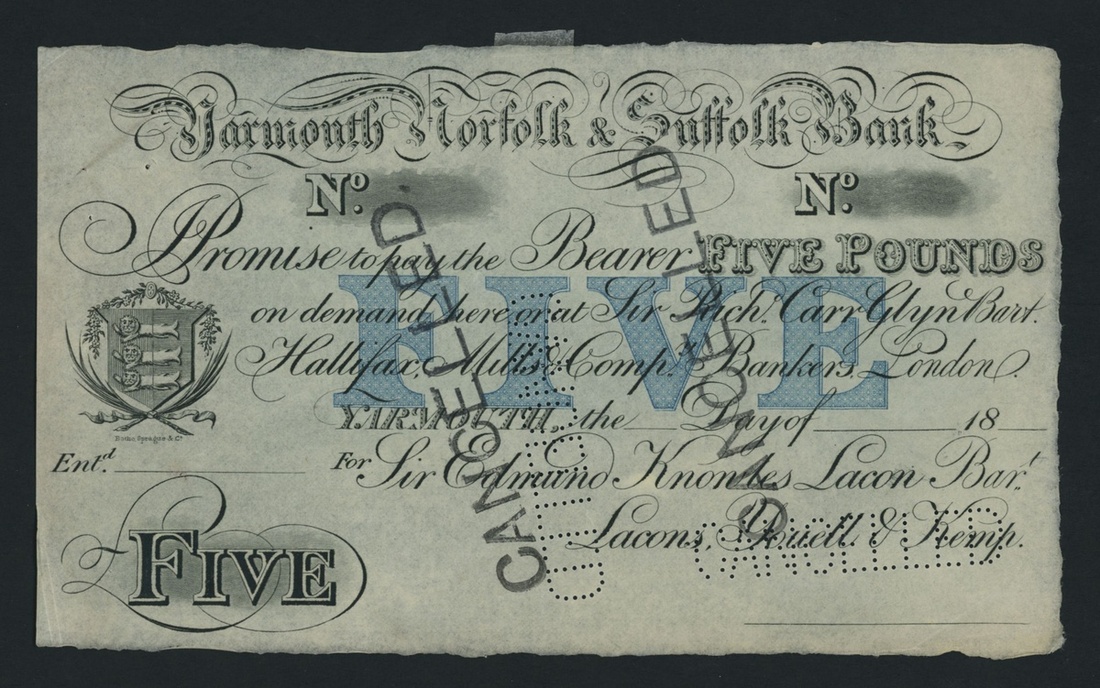 Yarmouth Norfolk & Suffolk Bank
Nº. Nº.
I Promise to pay the Bearer FIVE POUNDS
on demand here or at Sir Richd. Carr Glyn Bart.
Hallifax, Mills & Compy. Bankers London.
FIVE
YARMOUTH, the Day of 18
Entd. For Sir Edmund Knowles Lacon Bart.
Lacons, Youell & Kemp.
£ FIVE
CANCELLED
CANCELLED
CANCELLED
CANCELLED